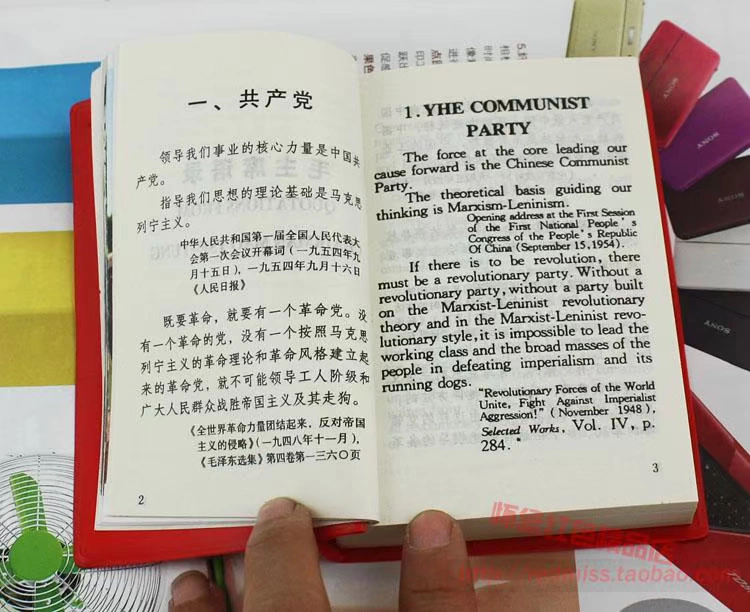 一、共产党
领导我们事业的核心力量是中国共
产党。
指导我们思想的理论基础是马克思
列宁主义。
中华人民共和国第一届全国人民代表大
会第一次会议开幕词（一九五四年九
月十五日），一九五四年九月十六日
《人民日报》
既要革命，就要有一个革命党。没
有一个革命的党，没有一个按照马克思
列宁主义的革命理论和革命风格建立起
来的革命党，就不可能领导工人阶级和
广大人民群众战胜帝国主义及其走狗。
《全世界革命力量团结起来，反对帝国
主义的侵略》（一九四八年十一月），
《毛泽东选集》第四卷第一三六〇页
2
1. YHE COMMUNIST
PARTY
The force at the core leading our
cause forward is the Chinese Communist
Party.
The theoretical basis guiding our
thinking is Marxism-Leninism.
Opening address at the First Session
of the First National People's
Congress of the People's Republic
Of China (September 15, 1954).
If there is to be revolution, there
must be a revolutionary party. Without a
revolutionary party, without a party built
on the Marxist-Leninist revolutionary
theory and in the Marxist-Leninist revo-
lutionary style, it is impossible to lead the
working class and the broad masses of the
people in defeating imperialism and its
running dogs.
"Revolutionary Forces of the World
Unite, Fight Against Imperialist
Aggression!" (November 1948),
Selected Works, Vol. IV, p.
284.
3
SONY
SONY
SONY
SONY